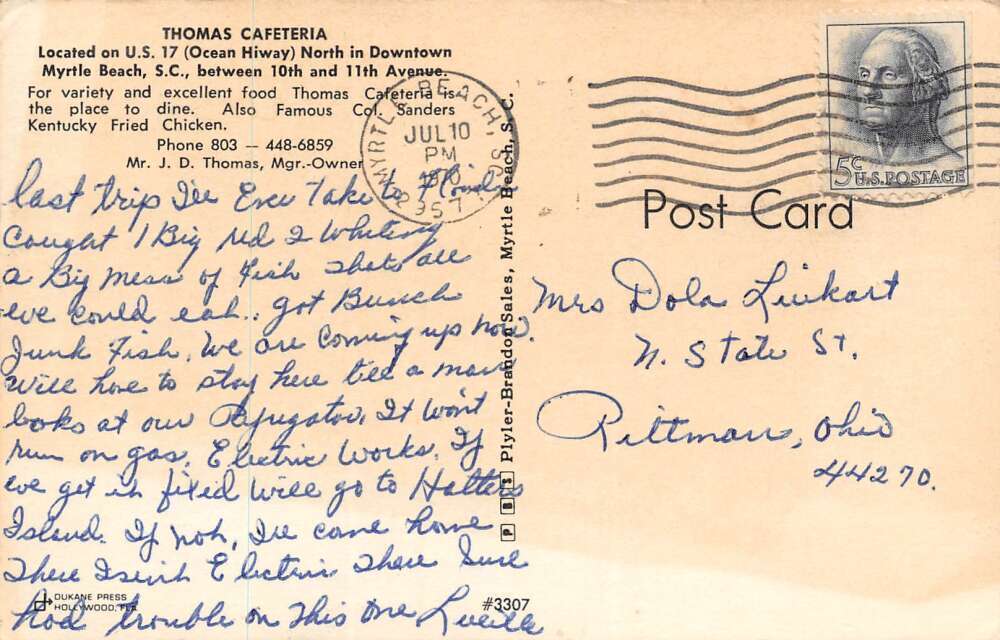 THOMAS CAFETERIA
Located on U.S. 17 (Ocean Hiway) North in Downtown
Myrtle Beach, S.C., between 10th and 11th Avenue.
For variety and excellent food Thomas Cafeteria is
the place to dine. Also Famous Col. Sanders
Kentucky Fried Chicken.
Phone 803 — 448-6859
Mr. J. D. Thomas, Mgr.-Owner
last trip I'll Ever Take to Florida
Caught 1 Big Red 2 Whiting
a Big mess of Fish thats all
we could eah.. got Bunch
Junk Fish. We are Coming up now.
will have to stay here till a man
looks at our Refrigator. It won't
run on gas. Electric Works. If
we get it fixed will go to Hatters
Island. If not, I'll come home
There Isent Electric There Sure
had trouble on This one Lucille
DUKANE PRESS
HOLLYWOOD, FLA
#3307
PBS Plyler-Brandon Sales, Myrtle Beach, S.C.
MYRTLE BEACH, SC
JUL 10
PM
1970
2957
5c U.S. POSTAGE
Post Card
Mrs Dola Linkart
N. State St.
Rittman, Ohio
44270.